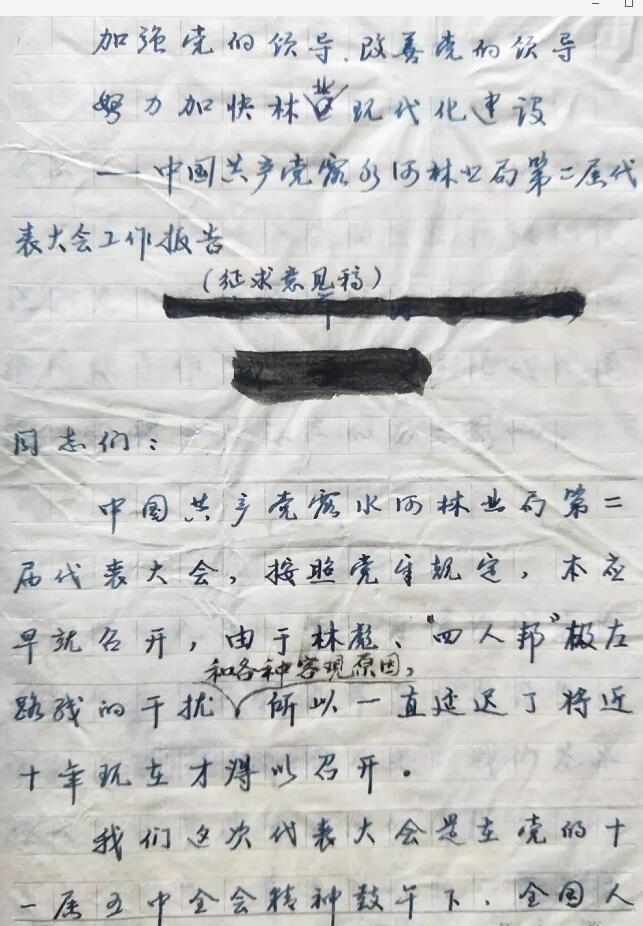 加强党的领导、改善党的领导
努力加快林业现代化建设
—中国共产党露水河林业局第二届代
表大会工作报告
(征求意见稿)
同志们:
中国共产党露水河林业局第二
届代表大会,按照党章规定,本应
早就召开,由于林彪、“四人邦”极左
和各种客观原因,
路线的干扰 所以一直延迟了将近
十年现在才得以召开。
我们这次代表大会是在党的十
一届五中全会精神鼓午下、全国人